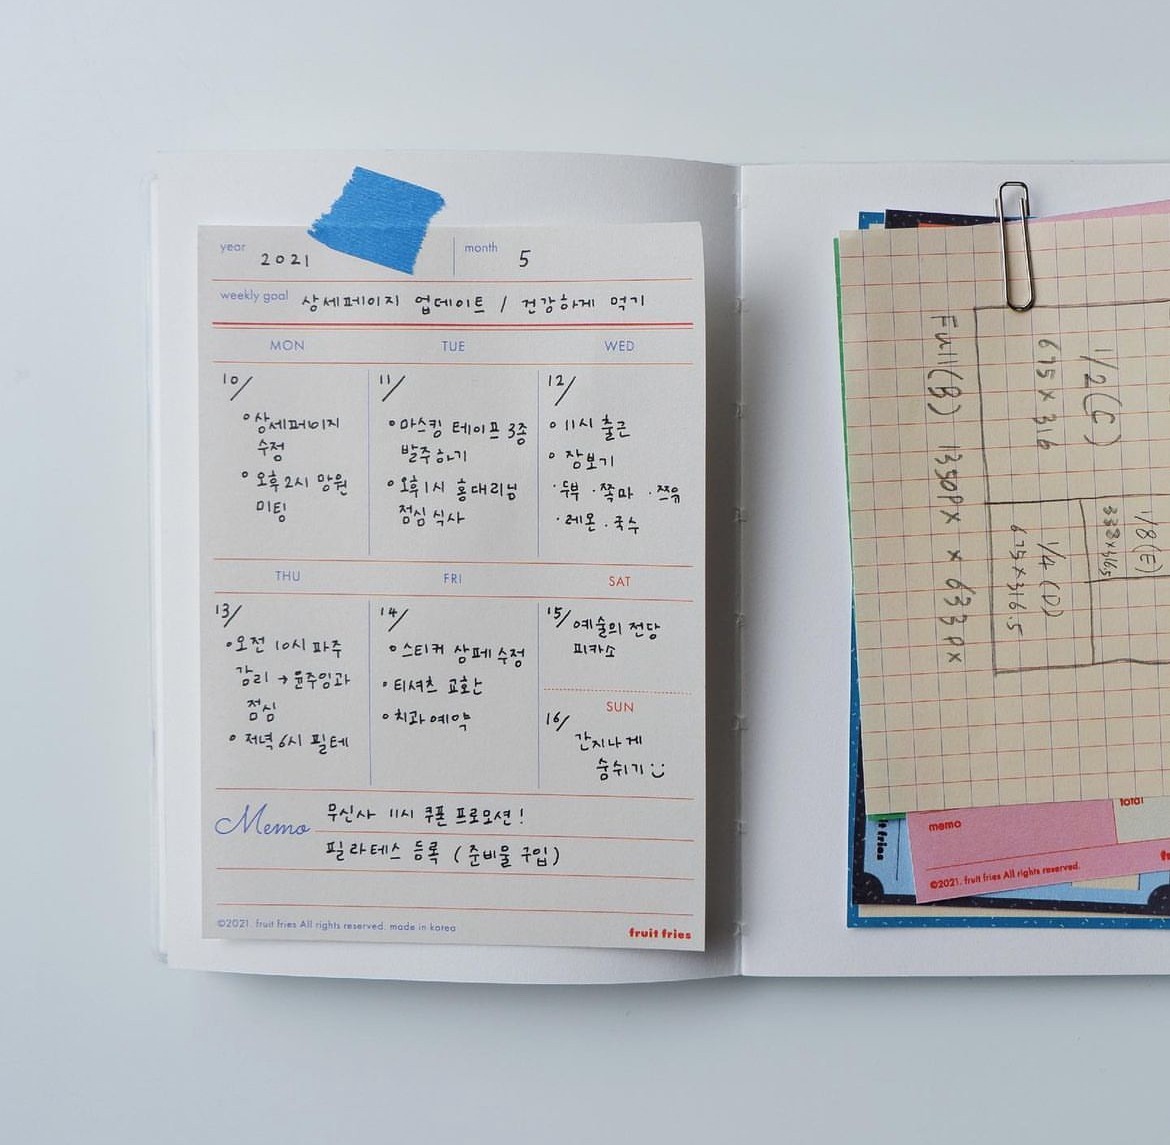 year 2021 month 5
weekly goal 상세페이지 업데이트 / 건강하게 먹기
MON TUE WED
10/
상세페이지
수정
오후 2시 망원
미팅
11/
마스킹 테이프 3종
발주하기
오후 1시 홍대리님
점심 식사
12/
11시 출근
장보기
·두부 ·쪽파 ·쯔유
·레몬 ·국수
THU FRI SAT
13/
오전 10시 파주
감리 → 윤주임과
점심
저녁 6시 필테
14/
스티커 상페 수정
티셔츠 교환
치과 예약
15/ 예술의 전당
피카소
SUN
16/
간지나게
숨쉬기
Memo 무신사 11시 쿠폰 프로모션!
필라테스 등록 (준비물 구입)
©2021. fruit fries All rights reserved. made in korea
fruit fries
1/2(C)
675 x 316
Full(B) 1350px x 633px
1/8(E)
338x365
1/4(D)
675x316.5
total
memo
©2021. fruit fries All rights reserved.